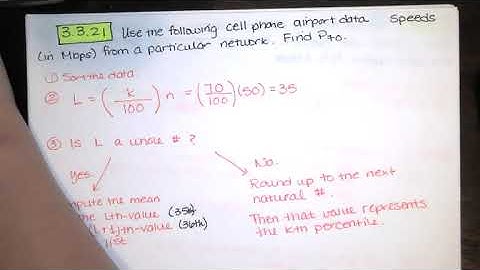 3.3.21 Use the following cell phone airport data speeds
(in Mbps) from a particular network. Find P70.
① Sort the data
② L = (k/100) n = (70/100)(50) = 35
③ Is L a whole # ?
Yes.
No.
Round up to the next
natural #.
Then that value represents
the kth percentile.
mpute the mean
the Lth-value (35th)
(L+1)th-value (36th)
list